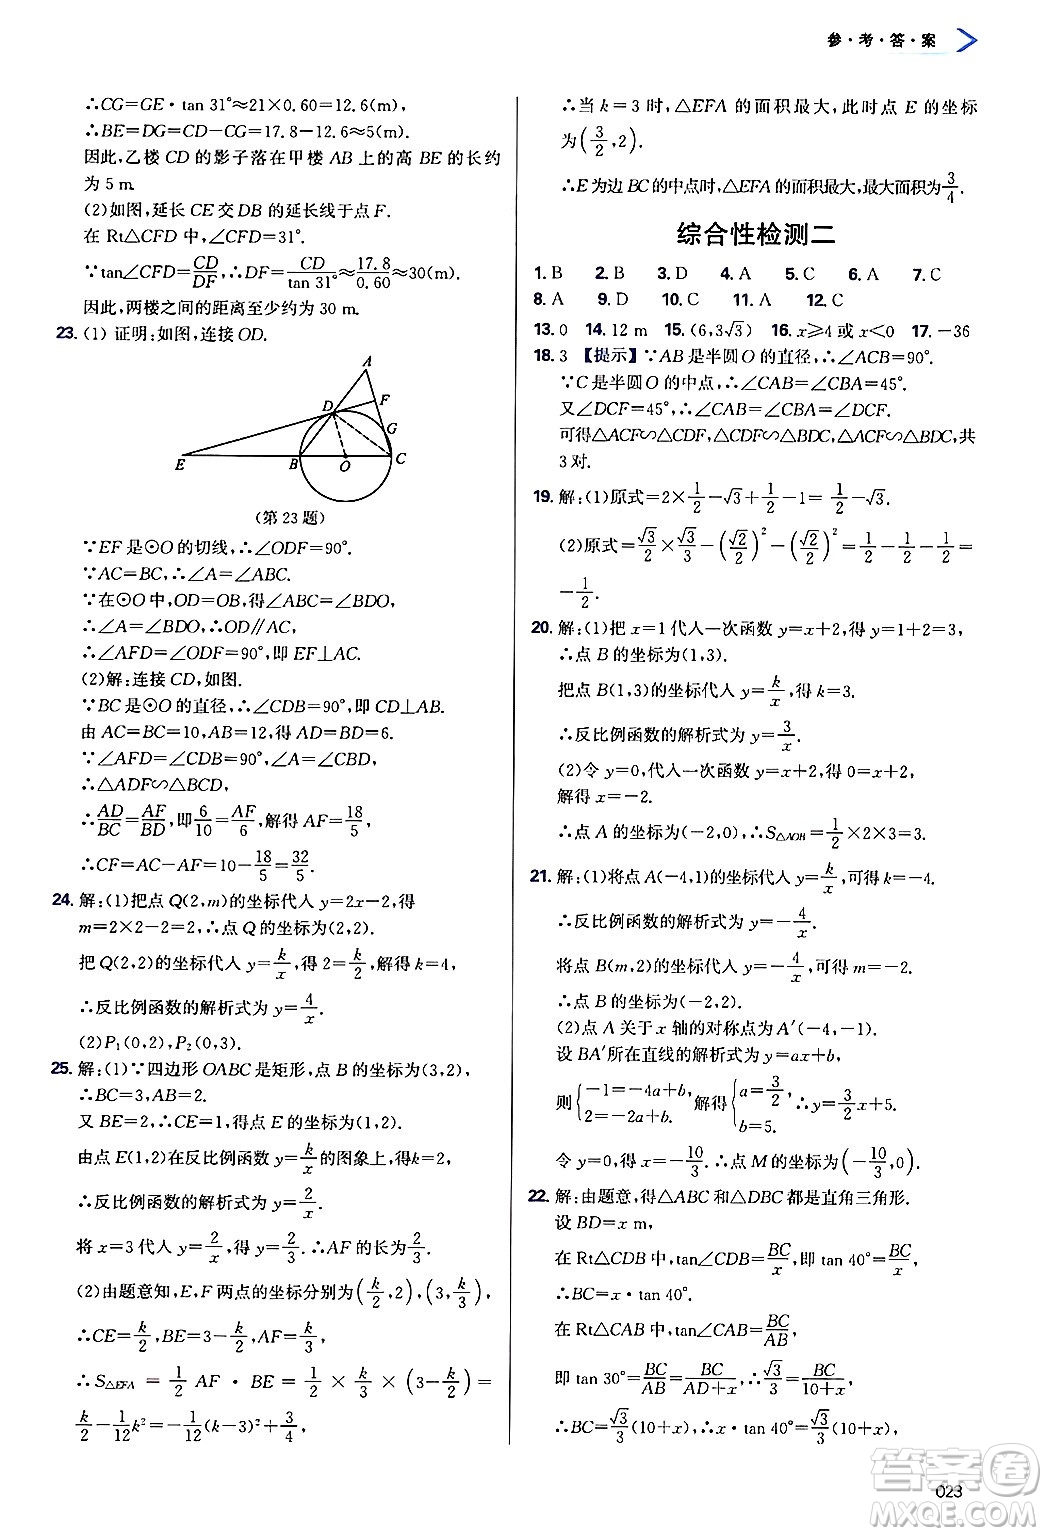 参·考·答·案
∴CG=GE·tan 31°≈21×0.60=12.6(m),
∴BE=DG=CD-CG=17.8-12.6≈5(m).
因此,乙楼 CD 的影子落在甲楼 AB 上的高 BE 的长约
为 5 m.
(2)如图,延长 CE 交 DB 的延长线于点 F.
在 Rt△CFD 中,∠CFD=31°.
∵tan∠CFD=CD/DF,∴DF=CD/tan 31°≈17.8/0.60≈30(m).
因此,两楼之间的距离至少约为 30 m.
23. (1) 证明:如图,连接 OD.
A
D
F
G
E
B
O
C
(第 23 题)
∵EF 是⊙O 的切线,∴∠ODF=90°.
∵AC=BC,∴∠A=∠ABC.
∵在⊙O 中,OD=OB,得∠ABC=∠BDO,
∴∠A=∠BDO,∴OD∥AC,
∴∠AFD=∠ODF=90°,即 EF⊥AC.
(2)解:连接 CD,如图.
∵BC 是⊙O 的直径,∴∠CDB=90°,即 CD⊥AB.
由 AC=BC=10,AB=12,得 AD=BD=6.
∵∠AFD=∠CDB=90°,∠A=∠ABC,
∴△ADF∽△BCD,
∴AD/BC=AF/BD,即6/10=AF/6,解得 AF=18/5,
∴CF=AC-AF=10-18/5=32/5.
24. 解:(1)把点 Q(2,m)的坐标代入 y=2x-2,得
m=2×2-2=2,∴点 Q 的坐标为(2,2).
把 Q(2,2)的坐标代入 y=k/x,得 2=k/2,解得 k=4,
∴反比例函数的解析式为 y=4/x.
(2)P₁(0,2),P₂(0,3).
25. 解:(1)∵四边形 OABC 是矩形,点 B 的坐标为(3,2),
∴BC=3,AB=2.
又 BE=2,∴CE=1,得点 E 的坐标为(1,2).
由点 E(1,2)在反比例函数 y=k/x 的图象上,得 k=2,
∴反比例函数的解析式为 y=2/x.
将 x=3 代入 y=2/x,得 y=2/3.∴AF 的长为2/3.
(2)由题意知,E,F 两点的坐标分别为(k/2,2),(3,k/3),
∴CE=k/2,BE=3-k/2,AF=k/3,
∴S△EFA = 1/2 AF·BE = 1/2 × k/3 × (3-k/2) =
k/2-1/12k²=-1/12(k-3)²+3/4,
∴当 k=3 时,△EFA 的面积最大,此时点 E 的坐标
为(3/2,2).
∴E 为边 BC 的中点时,△EFA 的面积最大,最大面积为3/4.
综合性检测二
1. B 2. B 3. D 4. A 5. C 6. A 7. C
8. A 9. D 10. C 11. A 12. C
13. 0 14. 12 m 15. (6,3√3) 16. x≥4 或 x<0 17. -36
18. 3 【提示】∵AB 是半圆 O 的直径,∴∠ACB=90°.
∵C 是半圆 O 的中点,∴∠CAB=∠CBA=45°.
又∠DCF=45°,∴∠CAB=∠CBA=∠DCF.
可得△ACF∽△CDF,△CDF∽△BDC,△ACF∽△BDC,共
3 对.
19. 解:(1)原式=2×1/2-√3+1/2-1=1/2-√3.
(2)原式=√3/2×√3/2-(√3/2)²-(√2/2)²=1/2-1/2-1/2=
-1/2.
20. 解:(1)把 x=1 代入一次函数 y=x+2,得 y=1+2=3,
∴点 B 的坐标为(1,3).
把点 B(1,3)的坐标代入 y=k/x,得 k=3.
∴反比例函数的解析式为 y=3/x.
(2)令 y=0,代入一次函数 y=x+2,得 0=x+2,
解得 x=-2.
∴点 A 的坐标为(-2,0),∴S△AOB=1/2×2×3=3.
21. 解:(1)将点 A(-4,1)的坐标代入 y=k/x,可得 k=-4.
∴反比例函数的解析式为 y=-4/x.
将点 B(m,2)的坐标代入 y=-4/x,可得 m=-2.
∴点 B 的坐标为(-2,2).
(2)点 A 关于 x 轴的对称点为 A′(-4,-1).
设 BA′所在直线的解析式为 y=ax+b,
则{-1=-4a+b, 2=-2a+b, 解得{a=3/2, b=5. ∴y=3/2x+5.
令 y=0,得 x=-10/3.∴点 M 的坐标为(-10/3,0).
22. 解:由题意,得△ABC 和△DBC 都是直角三角形.
设 BD=x m,
在 Rt△CDB 中,tan∠CDB=BC/x,即 tan 40°=BC/x,
∴BC=x·tan 40°.
在 Rt△CAB 中,tan∠CAB=BC/AB,
即 tan 30°=BC/AB=BC/AD+x,∴√3/3=BC/10+x,
∴BC=√3/3(10+x),∴x·tan 40°=√3/3(10+x),
023
答案圈
MXQE.COM